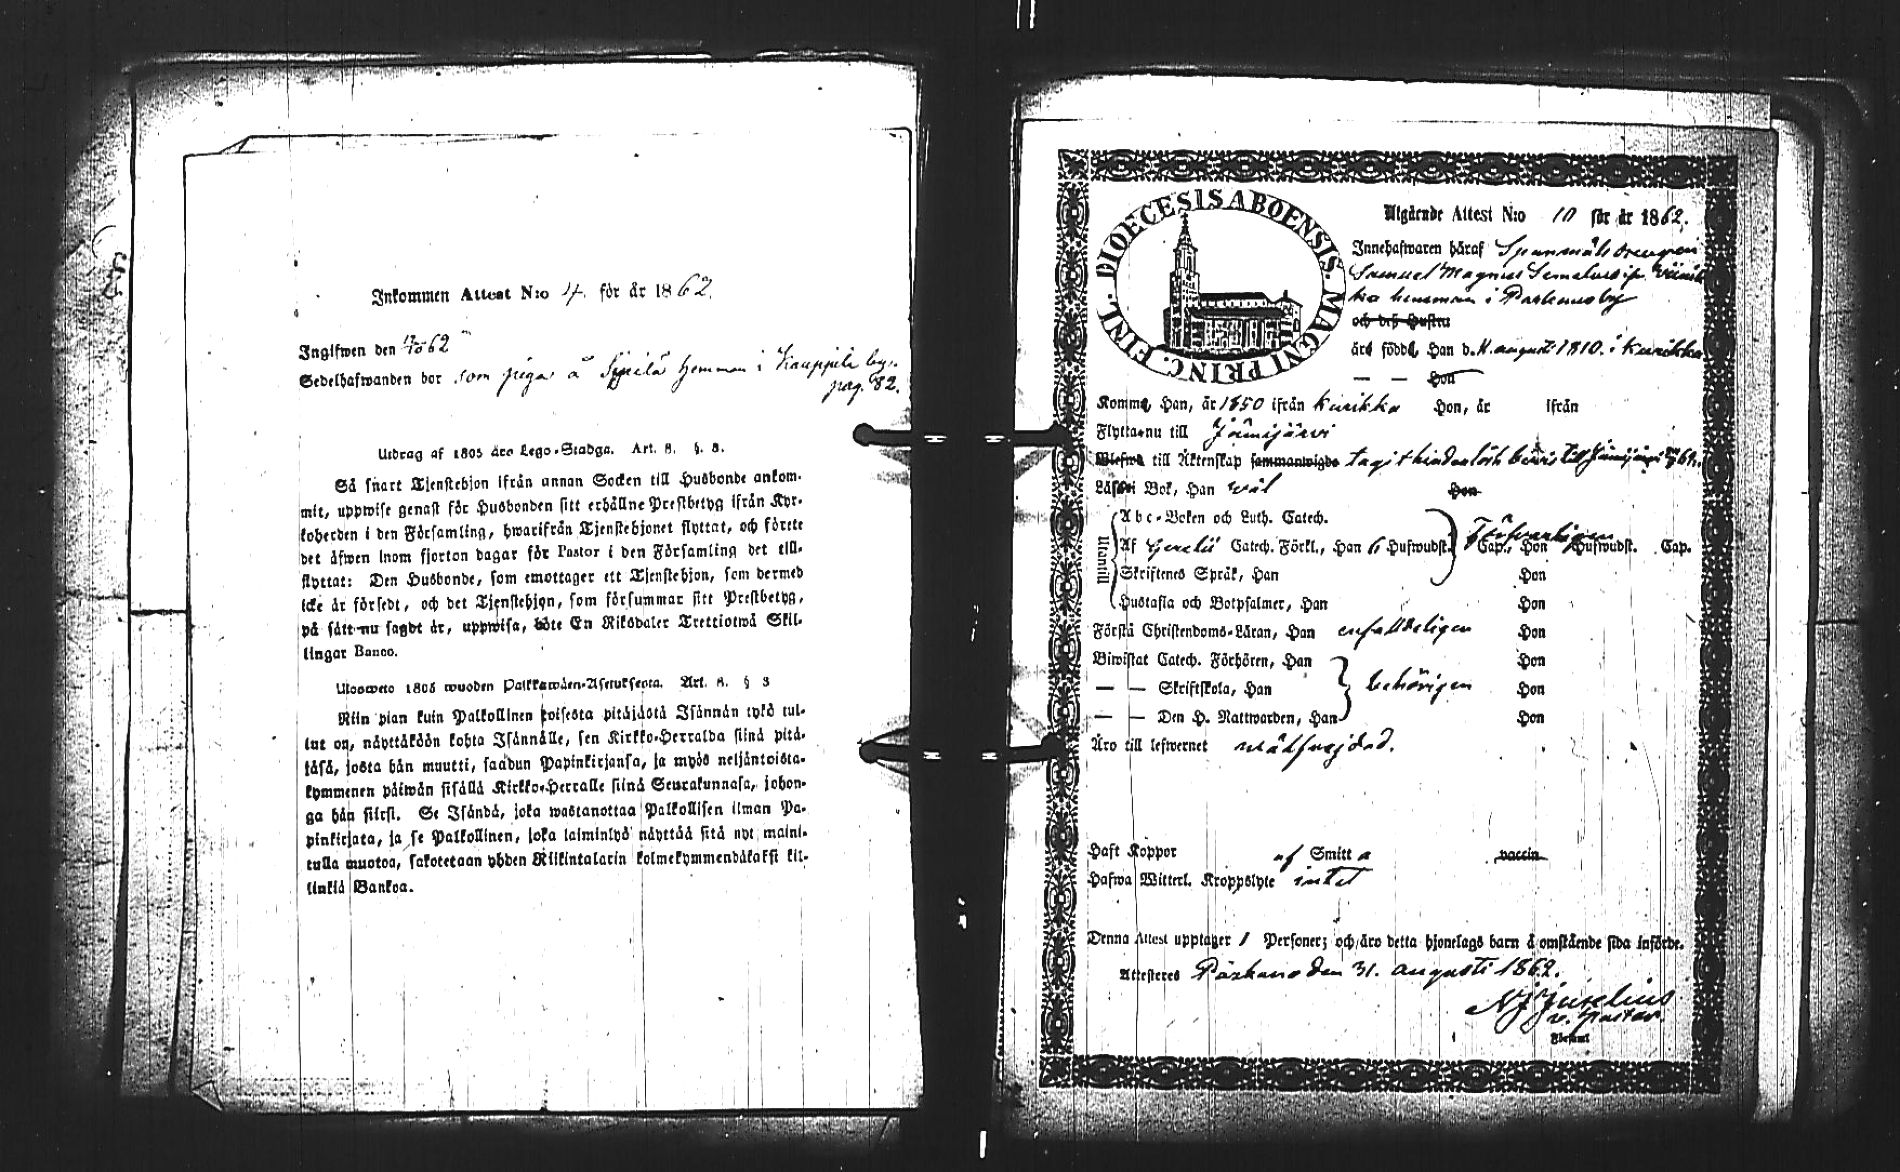 Inkommen Attest N:o 4. för år 1862.
Ingifwen den 62
Sedelhafwanden bor som piga å Sipilä hemman i Kauppila by.
pag. 82.
Utdrag af 1805 års Lego-Stadga. Art. 8. §. 3.
Så snart Tjenstehjon ifrån annan Socken till Husbonde ankom-
mit, uppwise genast för Husbonden sitt erhållne Prestbetyg ifrån Kyr-
koherden i den Församling, hwarifrån Tjenstehjonet flyttat, och förete
det äfwen inom fjorton dagar för Pastor i den Församling det till-
flyttat: Den Husbonde, som emottager ett Tjenstehjon, som dermed
icke är försedt, och det Tjenstehjon, som försummar sitt Prestbetyg,
på sätt nu sagdt är, uppwisa, böte En Riksdaler Trettiotwå Skil-
lingar Banco.
Ulosweto 1805 wuoden Palkkawäen-Asetuksesta. Art. 8. § 3
Niin pian kuin Palkollinen toisesta pitäjästä Isännän tykö tul-
lut on, näyttäköön kohta Isännälle, sen Kirkko-Herralda siinä pitä-
jäsä, josta hän muutti, saadun Papinkirjansa, ja myös neljäntoista-
kymmenen päiwän sisällä Kirkko-Herralle siinä Seurakunnasa, johon-
ga hän siirsi. Se Isändä, joka wastanottaa Palkollisen ilman Pa-
pinkirjata, ja se Palkollinen, joka laiminlyö näyttää sitä nyt maini-
tulla muotoa, sakotetaan yhden Riikintalarin kolmekymmendäkaksi kil-
linkiä Bankoa.
FINL. DIOECESIS ABOENSIS. MAGNI PRINC.
Utgående Attest N:o 10 för år 1862.
Innehafwaren häraf Spanmåls drengen
Samuel Magnus
hemman i Parkano by
och deß Hustru
äro födde, Han d. 11. augusti 1810. i Kurikka
— — Hon
Komme, Han, år 1850 ifrån Kurikka Hon, år ifrån
Flytta nu till Jämijärvi
Blefwo till Äktenskap sammanwigde tagit hinderlösh. bevis till Jämijärvi
Läser i Bok, Han wäl Hon
Utantill
Abc-Boken och Luth. Catech.
Af Gerelii Catech. Förkl., Han 6 Hufwudst. Cap., Hon Hufwudst. Cap.
Skriftenes Språk, Han Hon
Hustafla och Botpsalmer, Han Hon
Förstå Christendoms-Läran, Han enfalldeligen Hon
Biwistat Catech. Förhören, Han Hon
— — Skriftskola, Han behörigen Hon
— — Den H. Nattwarden, Han Hon
Äro till lefwernet wälfrejdad.
Haft Koppor af Smitta vaccin
Hafwa Witterl. Kroppslyte intet
Denna Attest upptager 1 Personer; och äro detta hjonelags barn å omstående sida införde.
Attesteres Parkano den 31. augusti 1862.
N J Juselius
v. pastor.